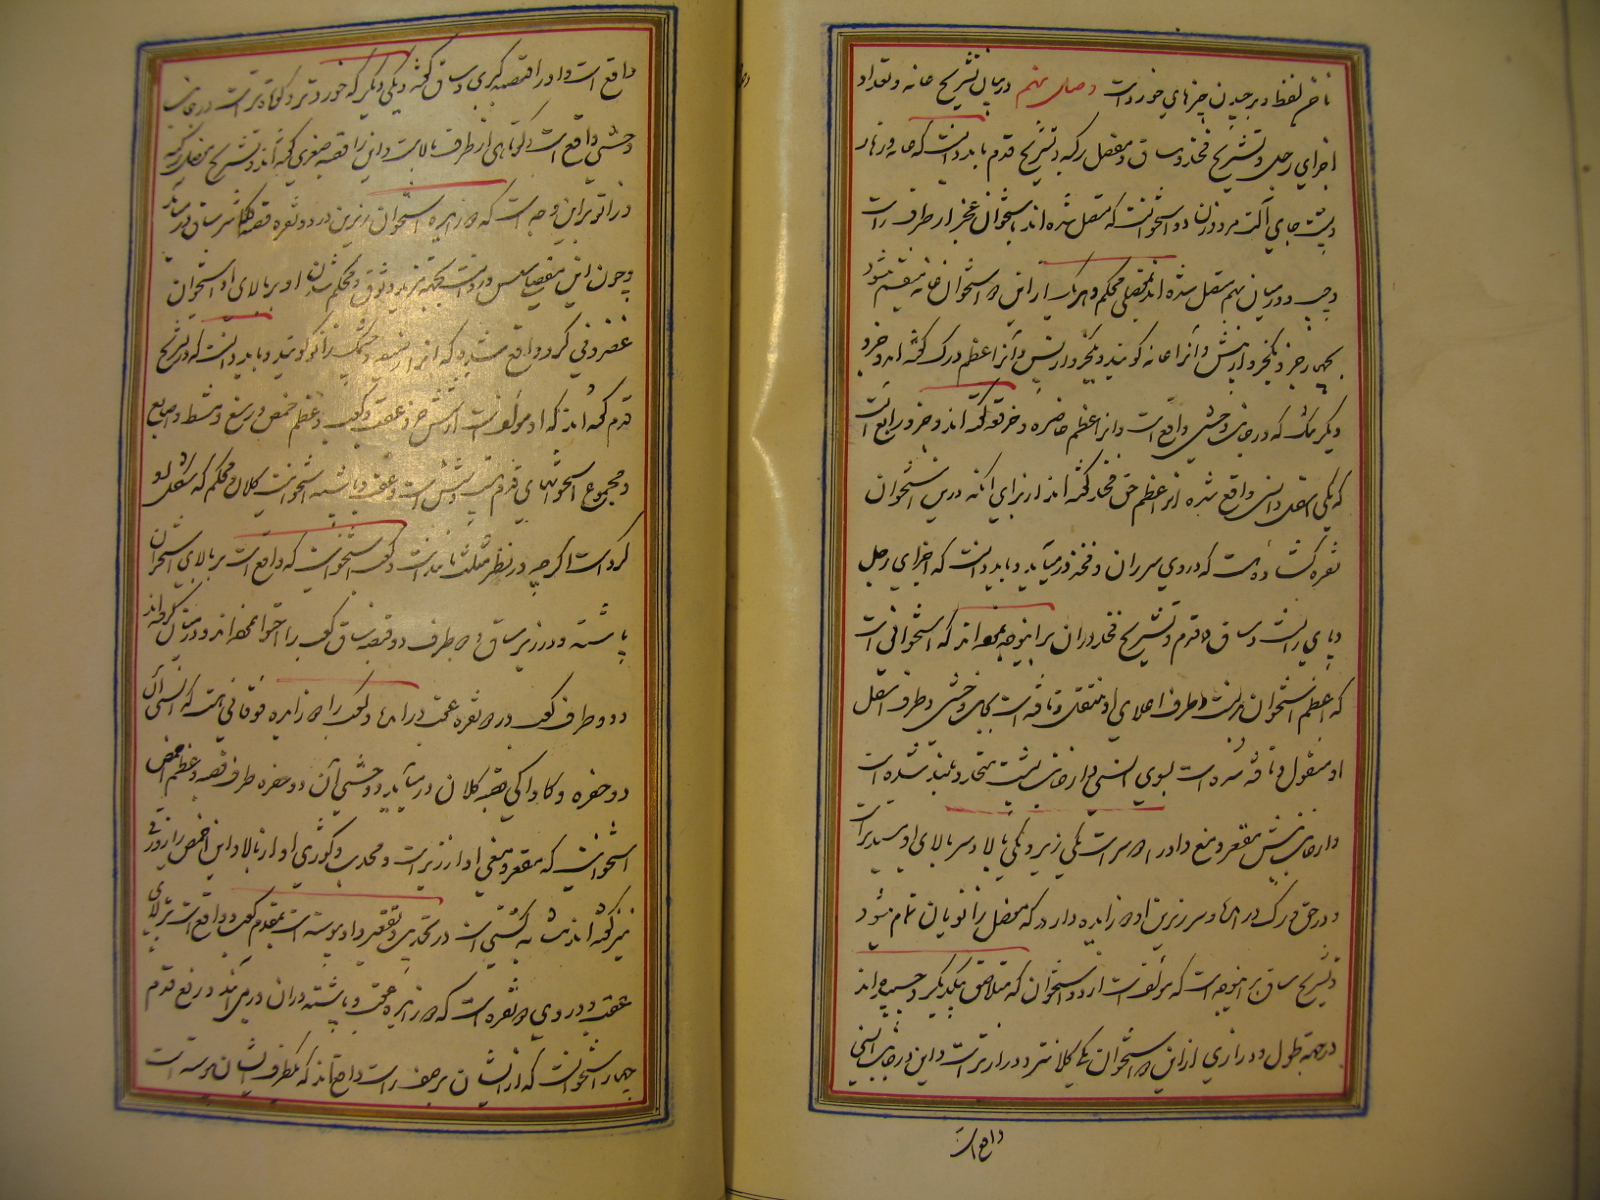 ناخن لفظ و برچیدن چیزهای خورد است وصل نهم در بیان تشریح عانه و تعداد
اجزای رجل و تشریح فخذ و ساق و مفصل رکبه و تشریح قدم باید دانست که عانه و زهار
و پشت جای آلت مرد و زن دو استخوانست که متصل شده اند باستخوان عجز از طرف راست
و چپ و در میان بهم متصل شده اند بمفصلی محکم و هر یک از این دو استخوان عانه منقسم میشود
بچهار جزو یکجزو از پیش و آنرا عانه کویند و یکجزو از پس و آنرا عظم ورک کفته اند و جزو
دیکر که در جانب وحشی واقع است و آنرا عظم خاصره و حرقفه کفته اند و جزو رابع آنست
که یکی اسفل و انسی واقع شده آنرا عظم حق فخذ کفته اند از برای آنکه درین استخوان
نقره کشاده است که در وی سر ران و فخذ در میآید و باید دانست که اجزای رجل
و پای رانست و ساق و قدم و تشریح فخذ و ران برینوجه نموده اند که استخوانی است
که اعظم استخوان بدنست و طرف اعلای او منفتل و تافته است بجانب وحشی و طرف اسفل
او مفتول و تافته شده است بسوی انسی و از جانب پشت محدب و بلند شده است
و از جانب پیش مقعر و مغ دارد او را دو سر است یکی زیر و یکی بالا و سر بالای او مستدیر است
و در حق ورک در آمده و سر زیرین او دو زایده دارد که مفصل زانو بآن تمام میشود
و تشریح ساق برینوجه است که مؤلفست از دو استخوان که متلاصق بیکدیکر و چسپیده اند
در جهة طول و درازی از این دو استخوان یکی کلانتر و درازتر است و این در جانب انسی
واقع است
واقع است و او را قصبه کبری و ساق کفته و یکی دیکر که خوردتر و کوتاه تر است در جانب
وحشی واقع است و کوتاهی از طرف بالاست و این را قصبه صغری کفته اند و تشریح مفصل رکبه
و زانو براین وجه است که دو زایده استخوان زیرین در دو نقره قصبه کلان سر ساق در میآید
و چون این مفصل سلس بود است بجهة مزید وثوق و محکم شدن او بر بالای او استخوان
غضروفی کرد واقع شده که آنرا رضفه و چشمک زانو کویند و باید دانست که در تشریح
قدم کفته اند که او مؤلفست از شش جزو عقب و کعب و عظم اخمص و رسغ و مشط و اصابع
و مجموع استخوانهای قدم بیست و شش است و عقب و پاشنه استخوانیست کلان و محکم که شکل او
کرد است اکرچه در نظر مثلث نماند است و کعب استخوانیست که واقع است بر بالای استخوان
پاشنه و در زیر ساق و دو طرف دو قصبه ساق کعب را احتوا نموده اند و در میان کرفته اند
و دو طرف کعب در دو نقره عقب در آمده و کعب را دو زایده فوقانی هست که انسی آن
دو حفره و کاواکی قصبه کلان در میآید و وحشی آن دو حفره طرف قصبه و عظم اخمص
استخوانیست که مقعر و مغی او از زیر است و محدب و کوژی او از بالا و این اخمص را زورقی
نیز کفته اند مشابه کشتی است در تحدیب و تقعیر و او پیوسته است بمقدم کعب و واقع است بر بالای
عقب و در وی دو نقره است که دو زایده عقب و پاشنه در آن در می آید و رسغ قدم
چهار استخوانست که از ایشان بر صف راست واقع اند که یکطرف ایشان پیوسته است